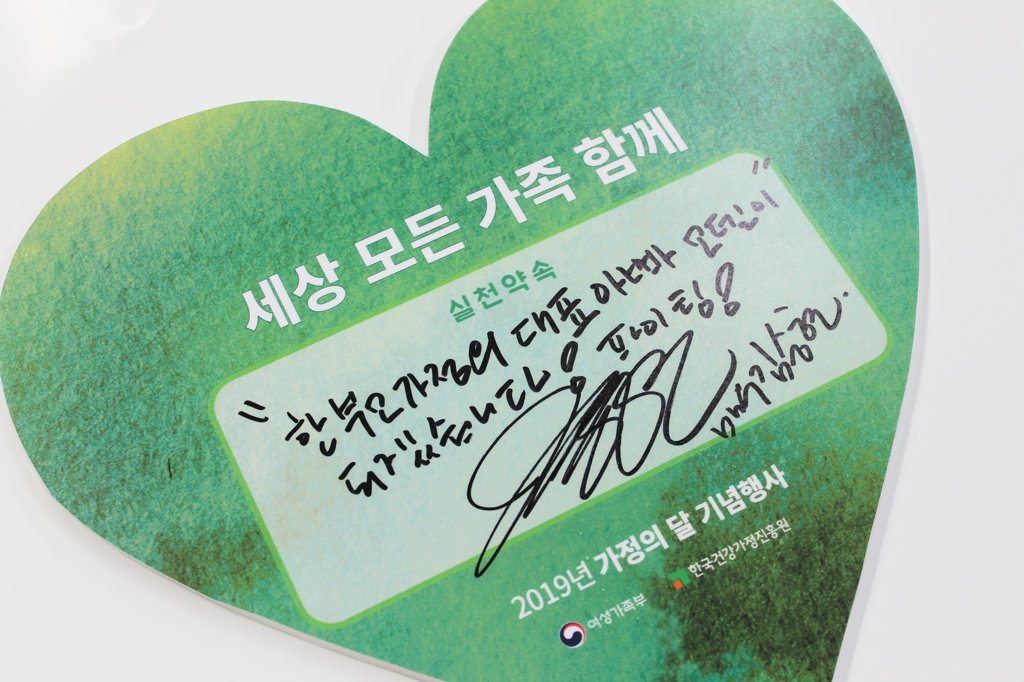 세상 모든 가족 함께
실천약속
"한부모가정의 대표 아빠가 모델이"
되겠습니다! 파이팅!
김승현.
2019년 가정의 달 기념행사
여성가족부
한국건강가정진흥원